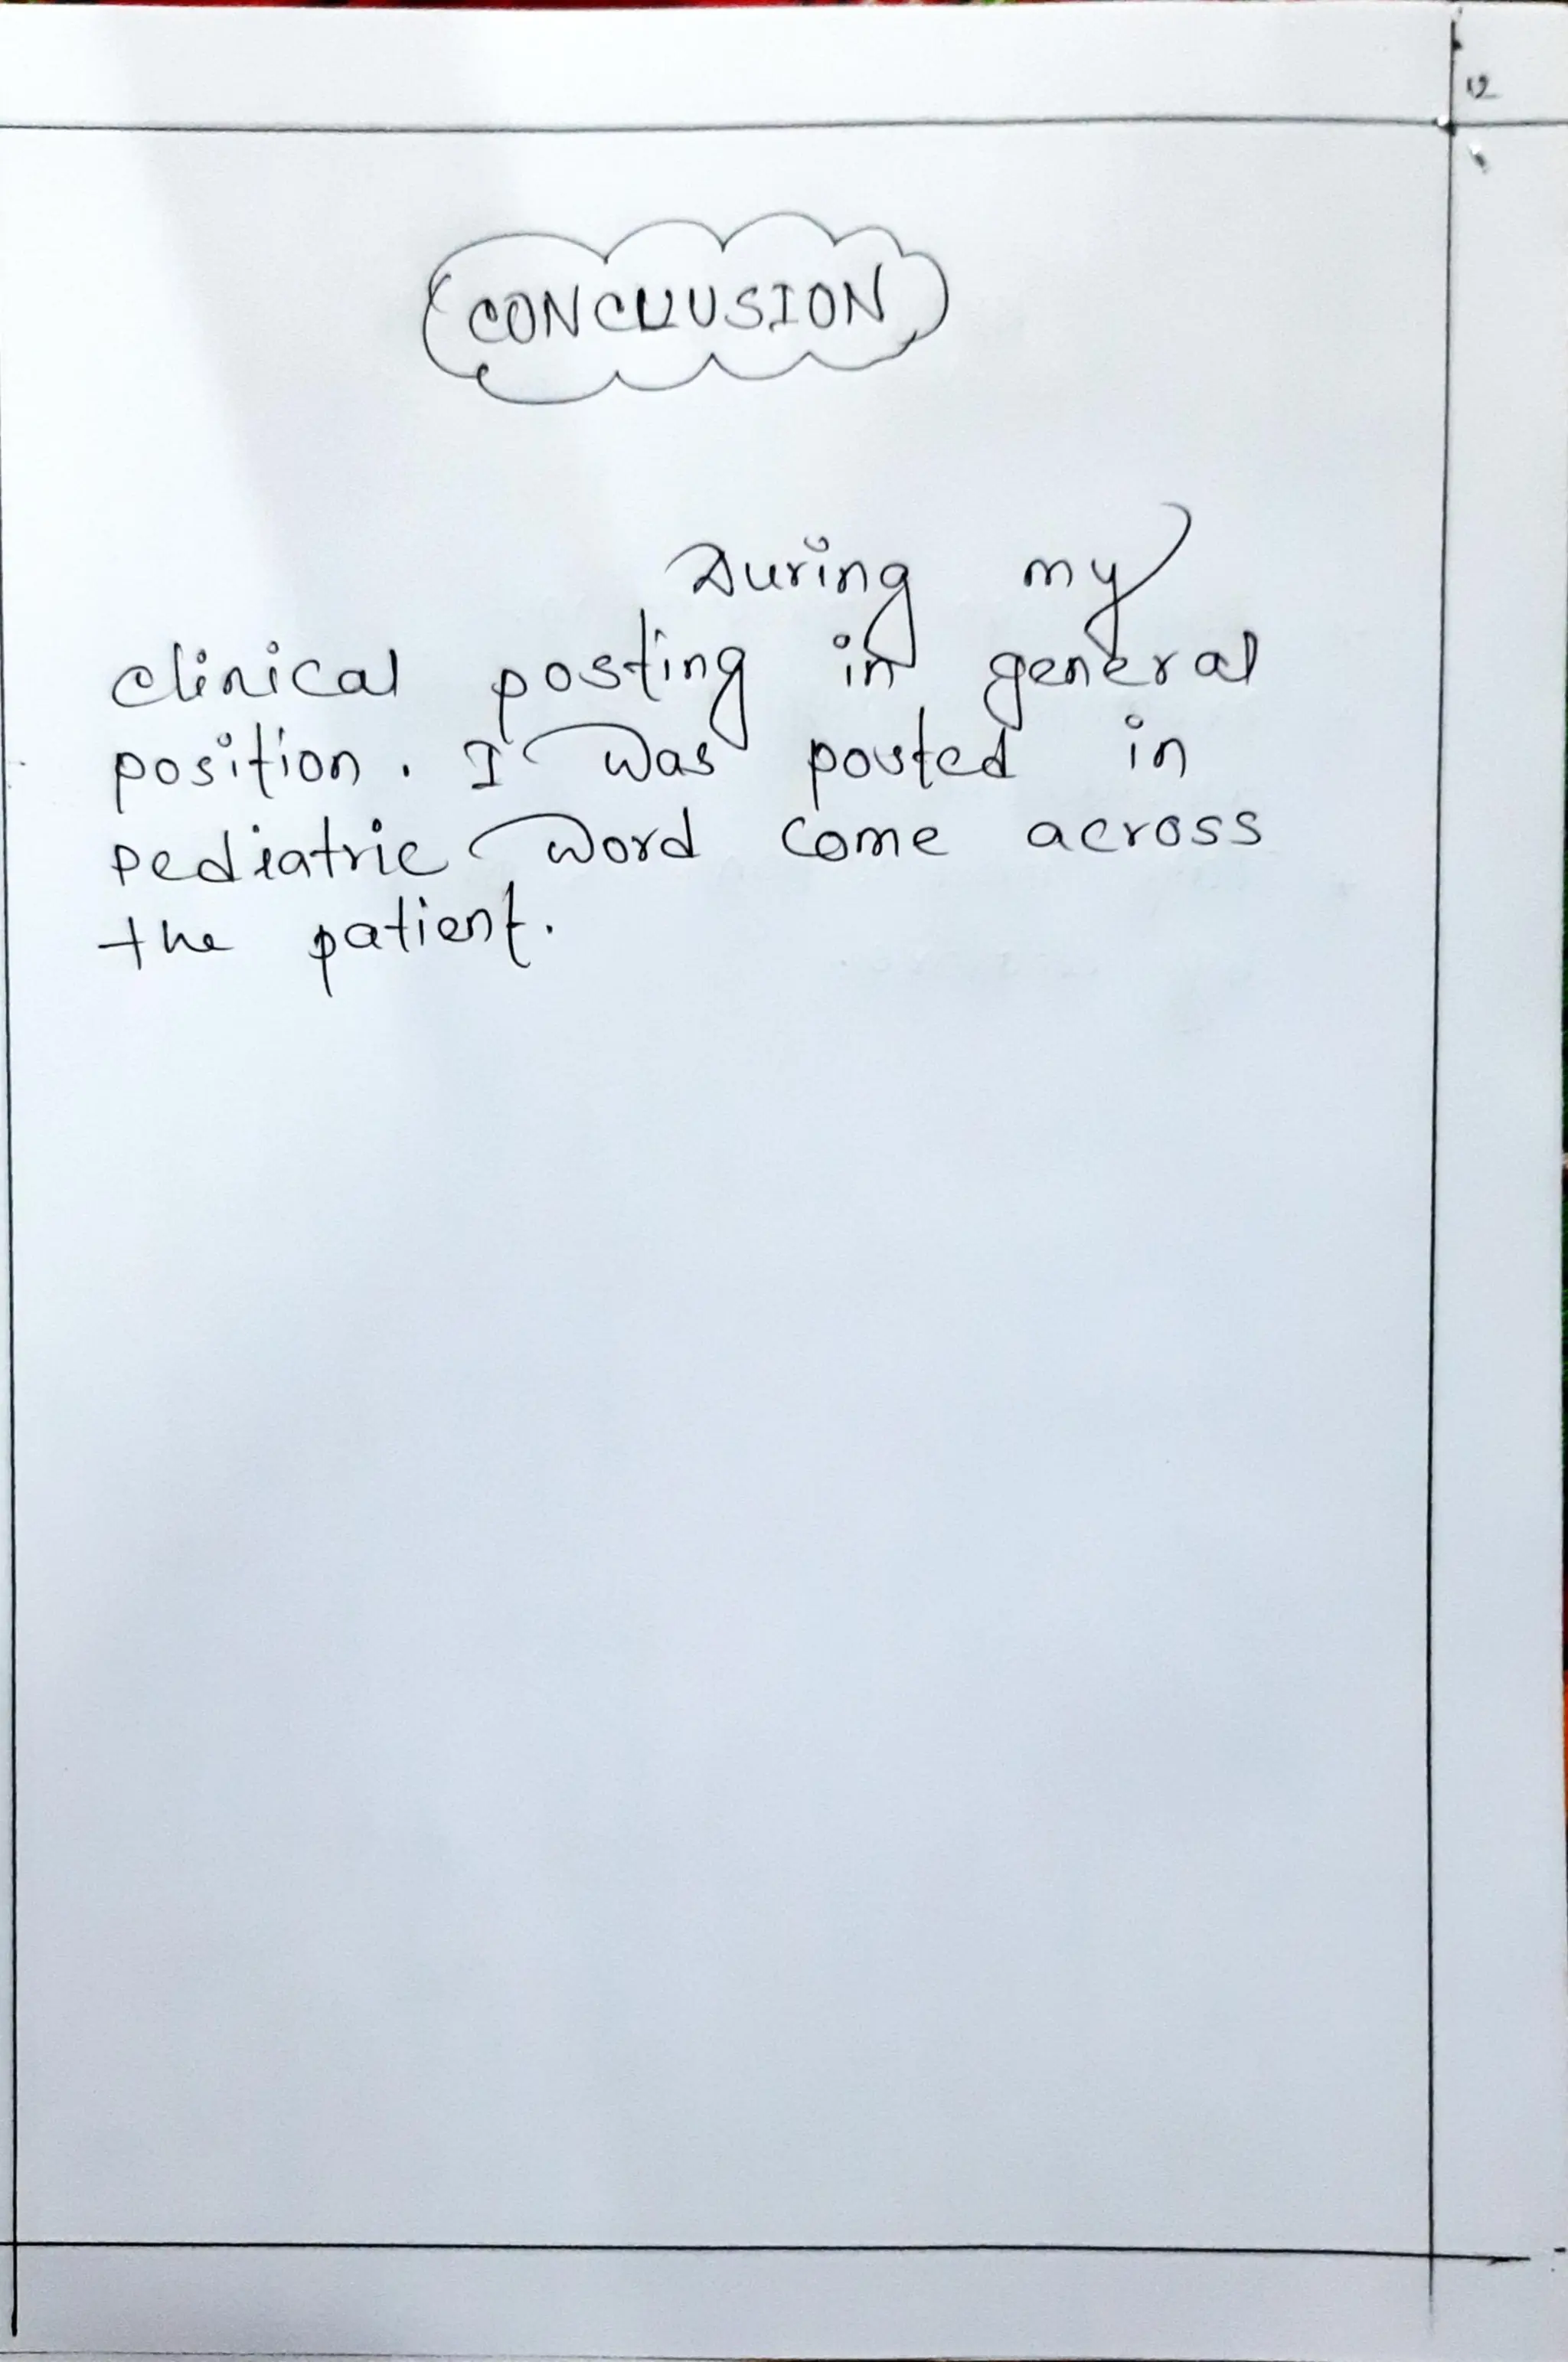 12
CONCLUSION
During my
clinical posting in general
position. I was posted in
pediatric word come across
the patient.